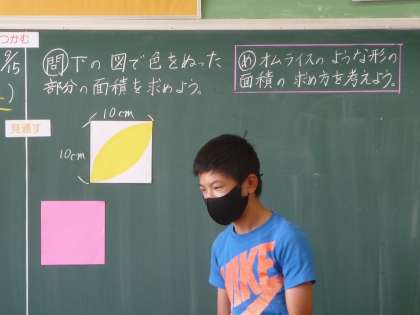 つかむ
9/15
問 下の図で色をぬった
部分の面積を求めよう。
め オムライスのような形の
面積の求め方を考えよう。
見通す
10cm
10cm
NIKE